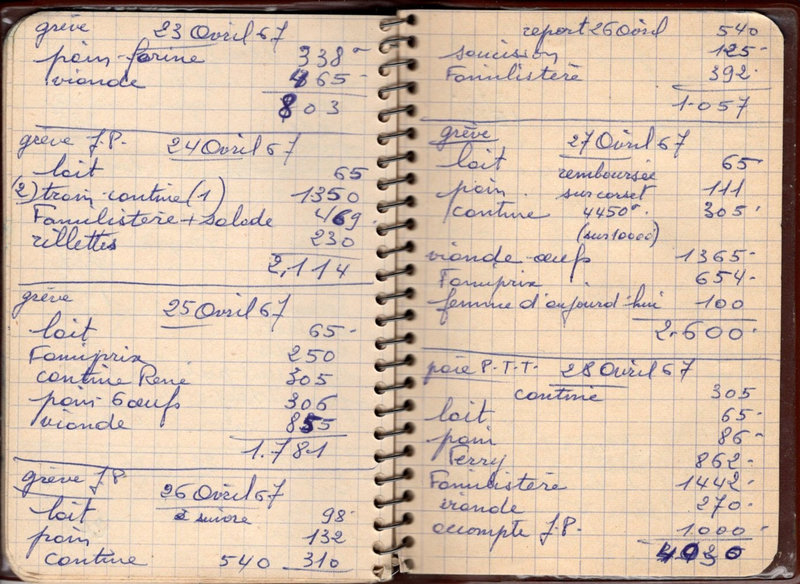 grève 23 Avril 67
pain-farine 338
viande 465
803
grève J.P. 24 Avril 67
lait 65
(2) train-cantine (1) 1350
Familistère + salade 469
rillettes 230
2.114
grève 25 Avril 67
lait 65
Famiprix 250
cantine René 305
pain 6 œufs 306
viande 855
1.781
grève J.P. 26 Avril 67
lait à suivre 98
pain 132
cantine 540 310
report 26 Avril 540
saucisson 125
Familistère 392
1.057
grève 27 Avril 67
lait remboursée 65
pain sur corset 111
cantine 4450 305
(sur 10000)
viande-œufs 1365
Famiprix 654
femme d'aujourd'hui 100
2.600
paie P.T.T. 28 Avril 67
cantine 305
lait 65
pain 86
Ferry 862
Familistère 1442
viande 270
acompte J.P. 1000
4030